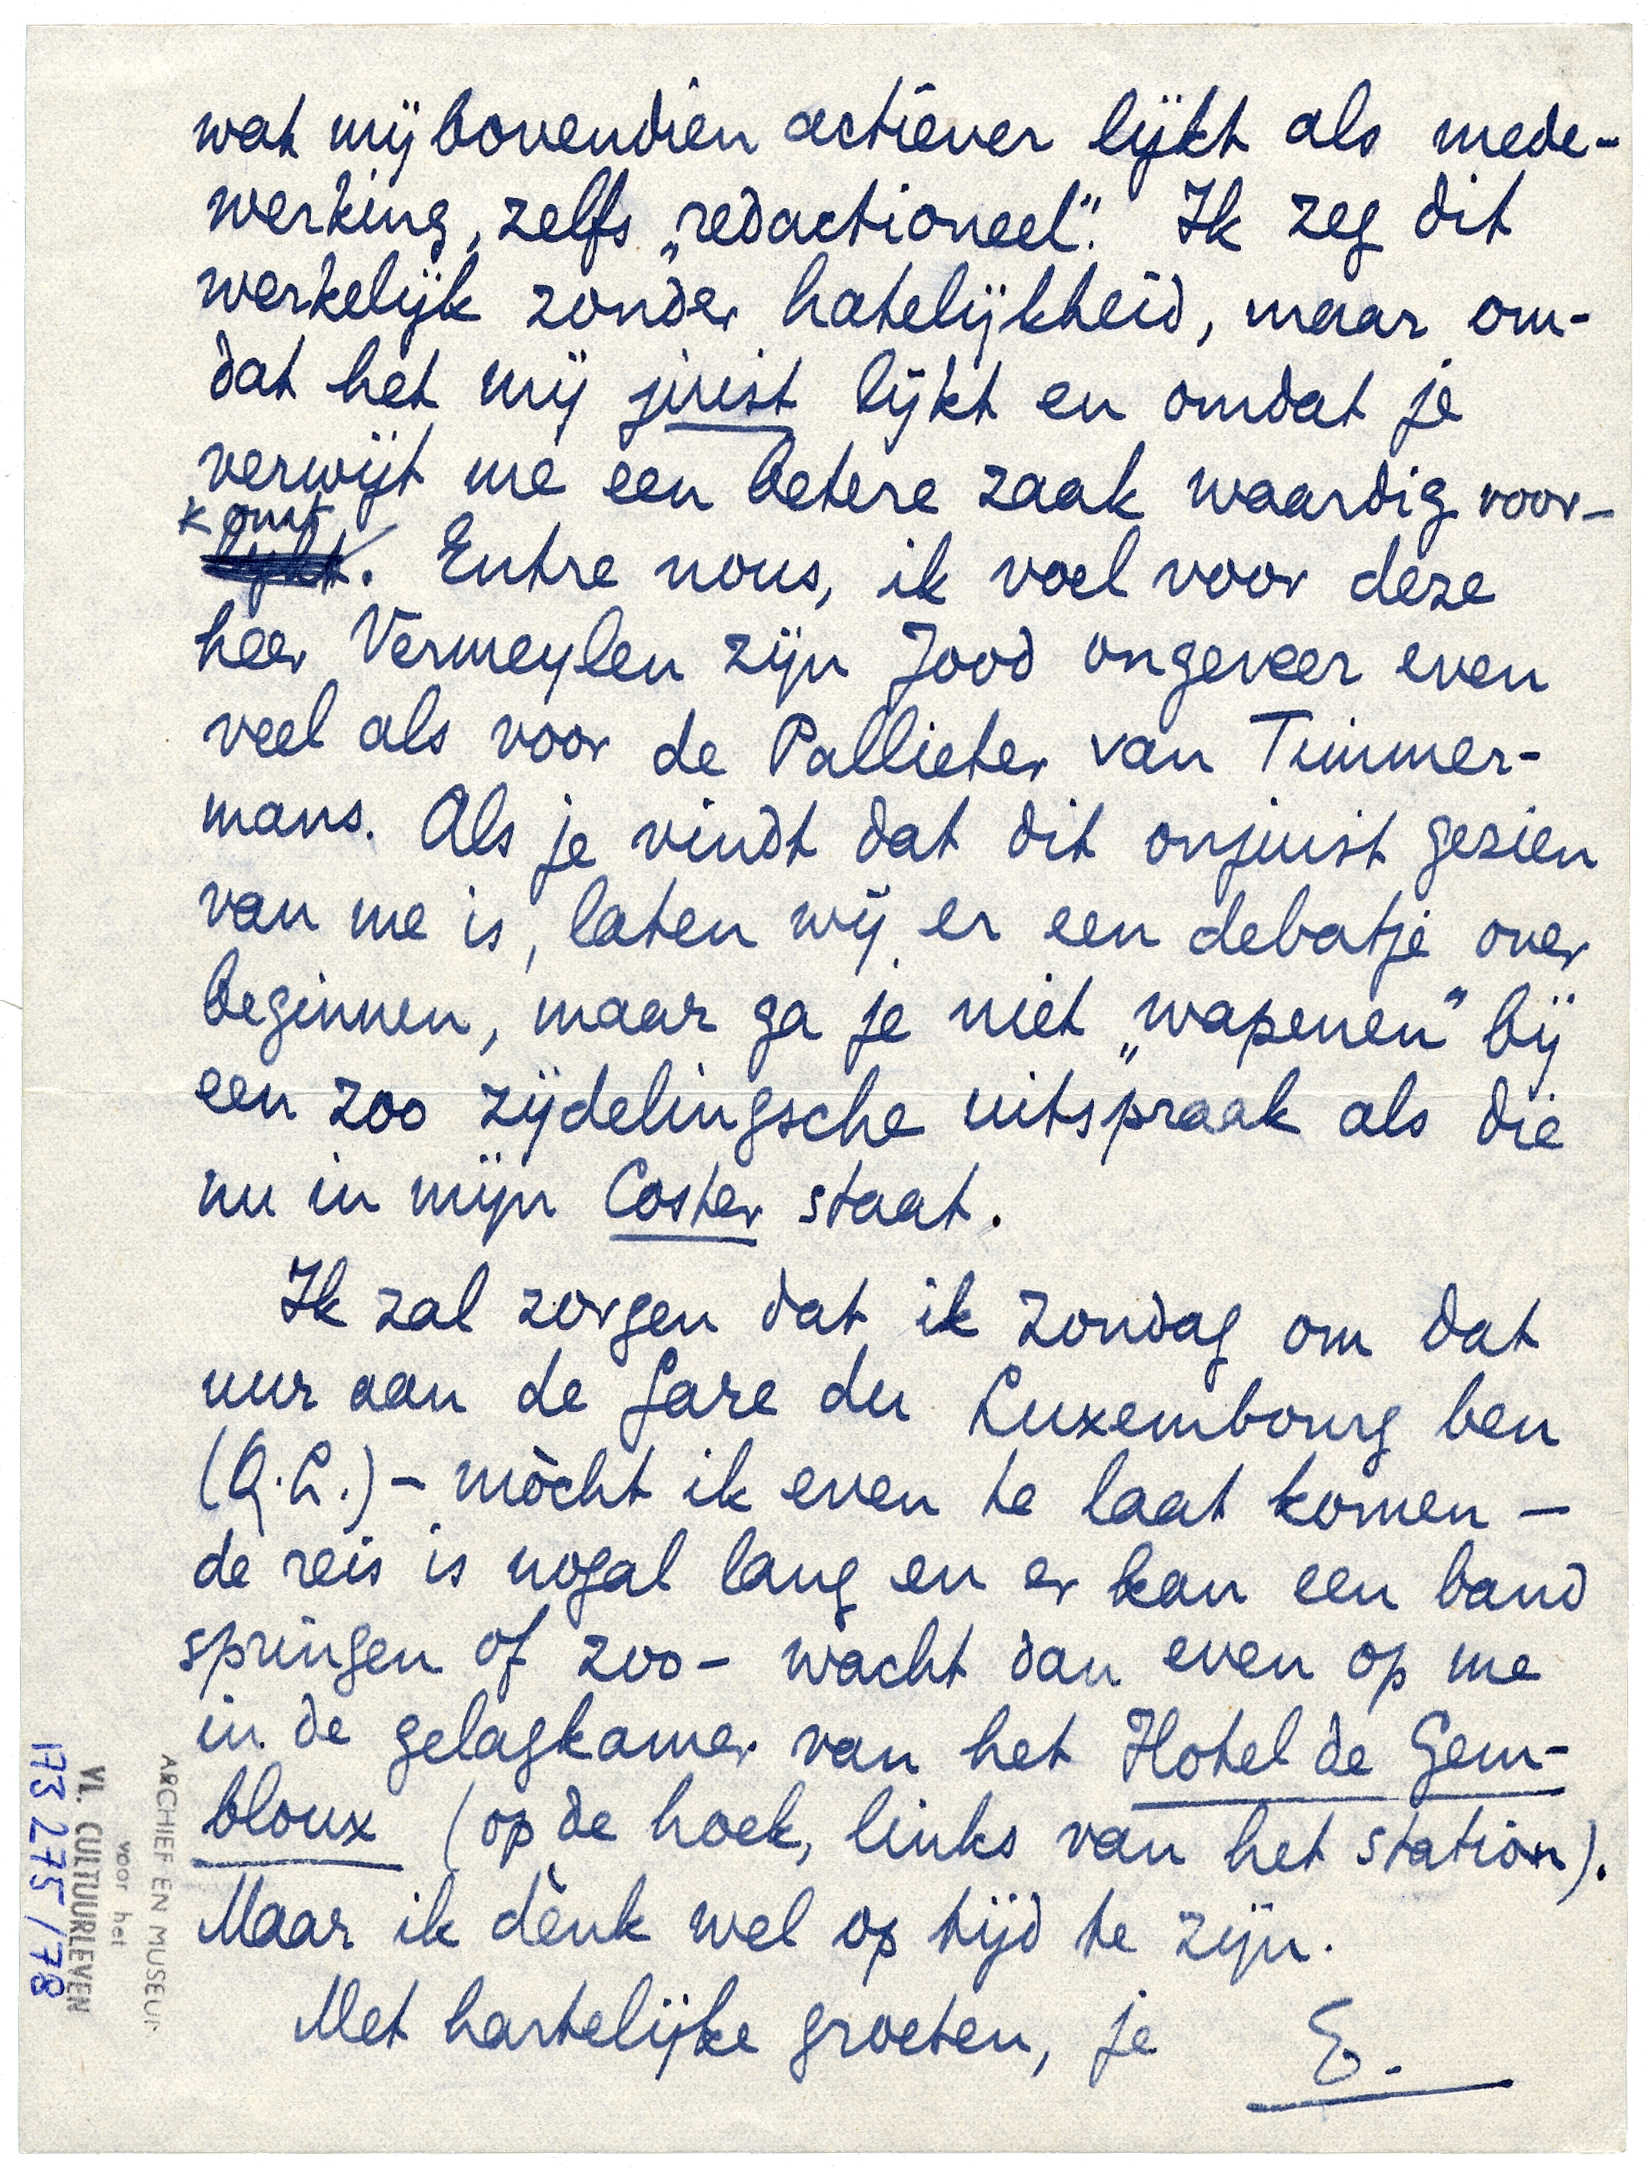 wat mij bovendien actiever lijkt als mede-
werking, zelfs „redactioneel”. Ik zeg dit
werkelijk zonder hatelijkheid, maar om-
dat het mij juist lijkt en omdat je
verwijt me een betere zaak waardig voor-
komt
lijkt. Entre nous, ik voel voor deze
heer Vermeylen zijn Jood ongeveer even
veel als voor de Pallieter van Timmer-
mans. Als je vindt dat dit onjuist gezien
van me is, laten wij er een debatje over
beginnen, maar ga je niet „wapenen” bij
een zoo zijdelingsche uitspraak als die
nu in mijn Coster staat.
Ik zal zorgen dat ik Zondag om dat
uur aan de Gare du Luxembourg ben
(Q.L.) – mòcht ik even te laat komen –
de reis is nogal lang en er kan een band
springen of zoo – wacht dan even op me
in de gelagkamer van het Hotel de Gem-
bloux (op de hoek, links van het station).
Maar ik dènk wel op tijd te zijn.
Met hartelijke groeten, je E.
ARCHIEF EN MUSEUM
voor het
VL. CULTUURLEVEN
173275/78